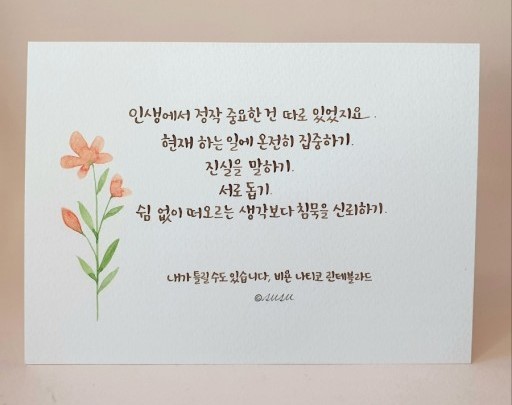 인생에서 정작 중요한 건 따로 있었지요.
현재 하는 일에 온전히 집중하기.
진실을 말하기.
서로 돕기.
쉼 없이 떠오르는 생각보다 침묵을 신뢰하기.
내가 틀릴 수도 있습니다, 비욘 나티코 린데블라드
©susu